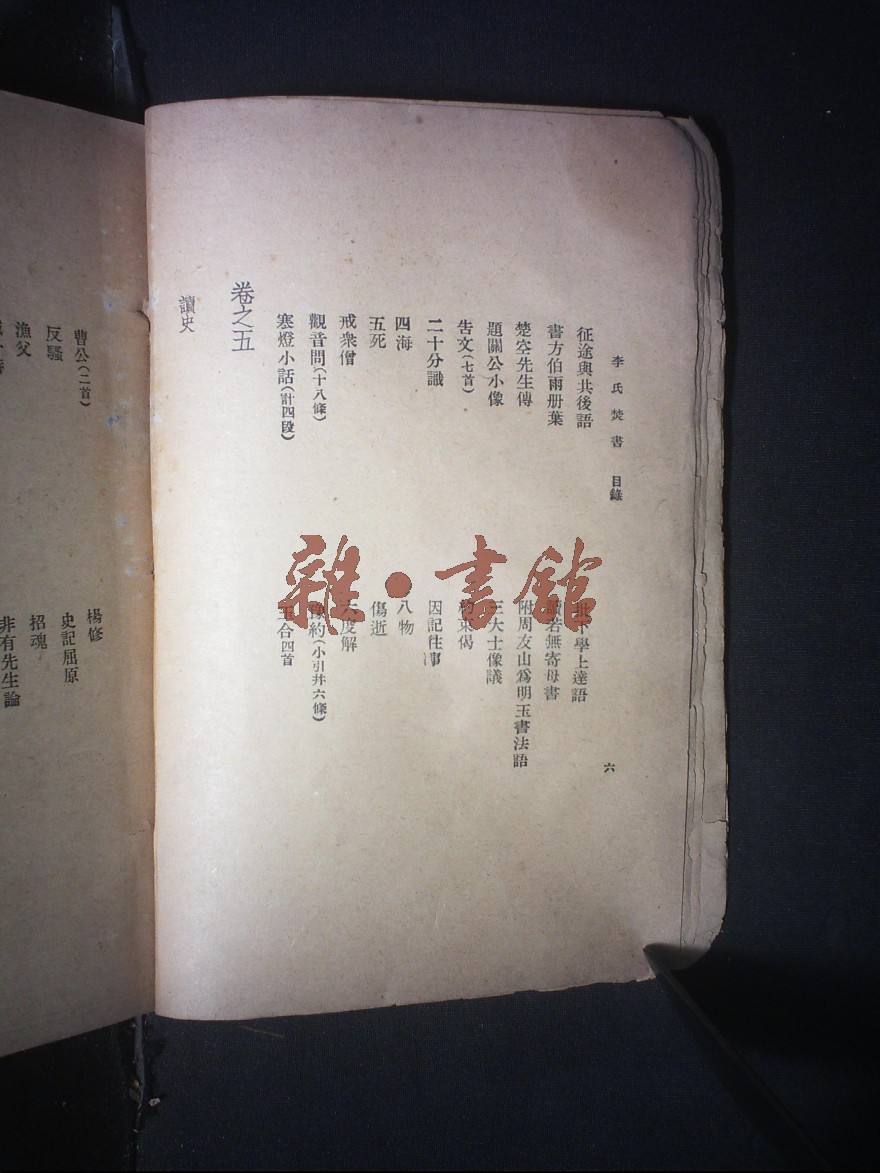 李氏焚書 目錄
六
征途與共後語
批下學上達語
書方伯雨册葉
若無寄母書
楚空先生傳
附周友山爲明玉書法語
題關公小像
三大士像議
告文(七首)
偈
二十分識
因記往事
四海
八物
五死
傷逝
戒衆僧
六度解
觀音問(十八條)
豫約(小引幷六條)
寒燈小話(計四段)
玉合四首
卷之五
讀史
曹公(二首)
楊修
反騷
史記屈原
漁父
招魂
非有先生論
雜·書館